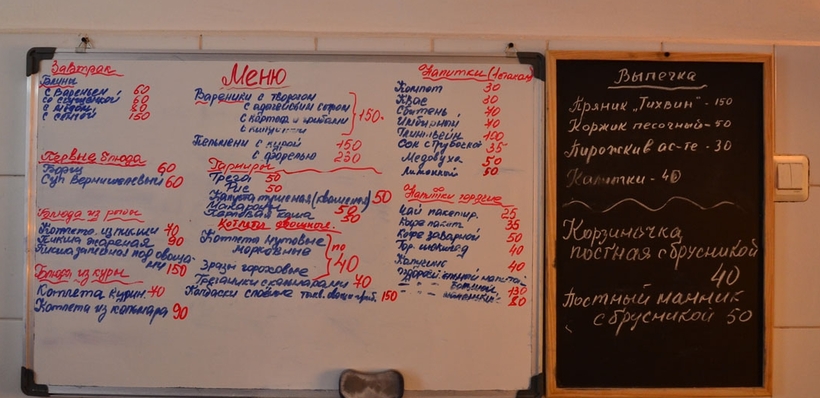 Завтрак
Блины
с вареньем 60
со сгущенкой 60
с мёдом 80
с семгой 150
Первые блюда
Борщ 60
Суп вермишелевый 60
Блюда из рыбы
Котлета из пикши 70
Пикша жареная 90
Пикша запечёная под овоща-
ми 150
Блюда из куры
Котлета курин. 70
Котлета из кальмара 90
Меню
Вареники с творогом
с адыгейским сыром
с картоф. и грибами
с капустой
150-
Пельмени с курой 150
с форелью 230
Гарниры
Греча 50
Рис 50
Капуста тушеная (квашеная) 50
Макароны 50
Картофель
Котлета овощная.
Котлета нутовые
морковные
Зразы гороховые
по 40
с кальмарами 70
Колбаски соевые 150
Напитки (1 стакан)
Компот 30
Квас 30
Сбитень 40
Имбирный 40
Глинтвейн 100
Сок 35
Медовуха 50
Лимонный 50
Напитки горячие
Чай пакетир. 25
Кофе 35
Кофе заварной 50
Гор. шоколад 40
Капучин 40
130
80
Выпечка
Пряник „Тихвин" - 150
Коржик песочный - 50
Пирожки в ас-те - 30
Калитки - 40
Корзиночка
постная с брусникой
40
Постный манник
с брусникой 50